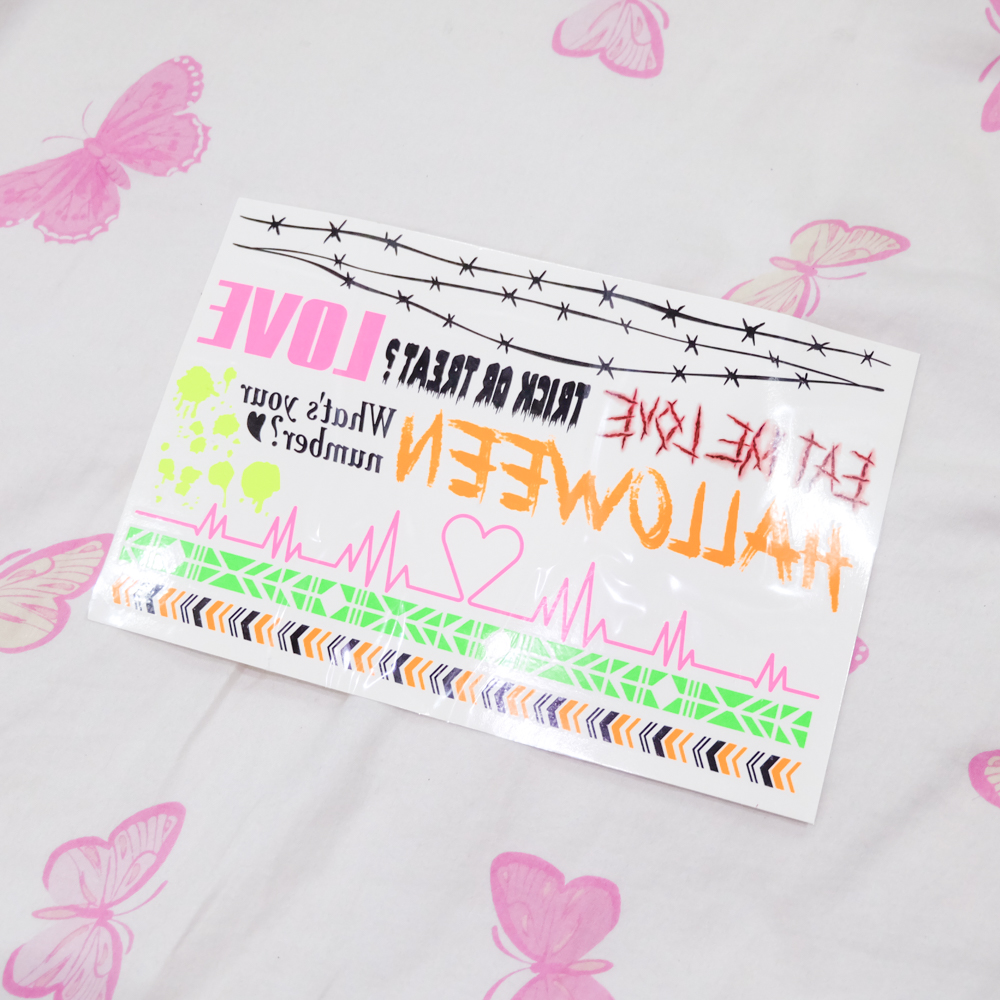 LOVE
TRICK OR TREAT?
EAT ME LOVE
What's your
number?
HALLOWEEN